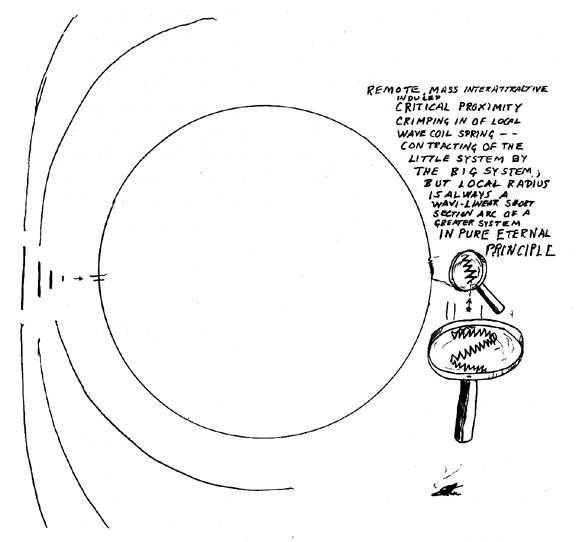 REMOTE MASS INTERATTRACTIVE
INDUCED
CRITICAL PROXIMITY
CRIMPING IN OF LOCAL
WAVE COIL SPRING --
CONTRACTING OF THE
LITTLE SYSTEM BY
THE BIG SYSTEM,
BUT LOCAL RADIUS
IS ALWAYS A
WAVI-LINEAR SHORT
SECTION ARC OF A
GREATER SYSTEM
IN PURE ETERNAL
PRINCIPLE